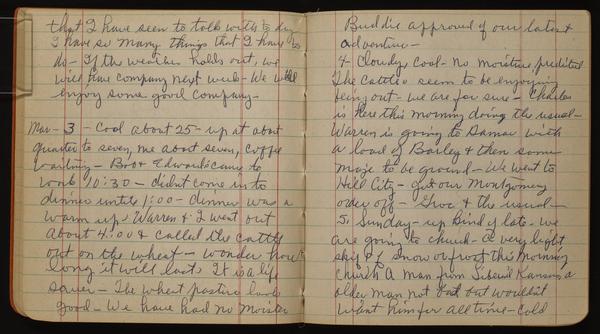 that I have seen to talk with to day
I have so many things that I have to
do - If the weather holds out, we
will have company next week - We will
enjoy some good company -
Mar - 3 - Cool about 25 - up at about
quarter to seven, me about seven, coffee
waiting - Boo & Edward came to
work 10:30 - didnt come in to
dinner until 1:00 - dinner was a
warm up - Warren & I went out
about 4:00 & called the cattle
out on the wheat - wonder how
long it will last It is a life
saver - The wheat pasture looks
good - We have had no moister
Buddie approved of our latest
adventure -
4 - Cloudy cool - no moisture predicted
The cattle seem to be enjoying
being out - we are for sure - Charles
is here this morning doing the usual -
Warren is going to Damar with
a load of Barley & then some
maize to be ground - We went to
Hill City - got our Montgomery
order off - Groc & the usual -
5, Sunday - up kind of late - we
are going to church - a very light
skift of snow or frost this morning
church A man from Kansas a
older man not bad but wouldnt
want him for all time - cold